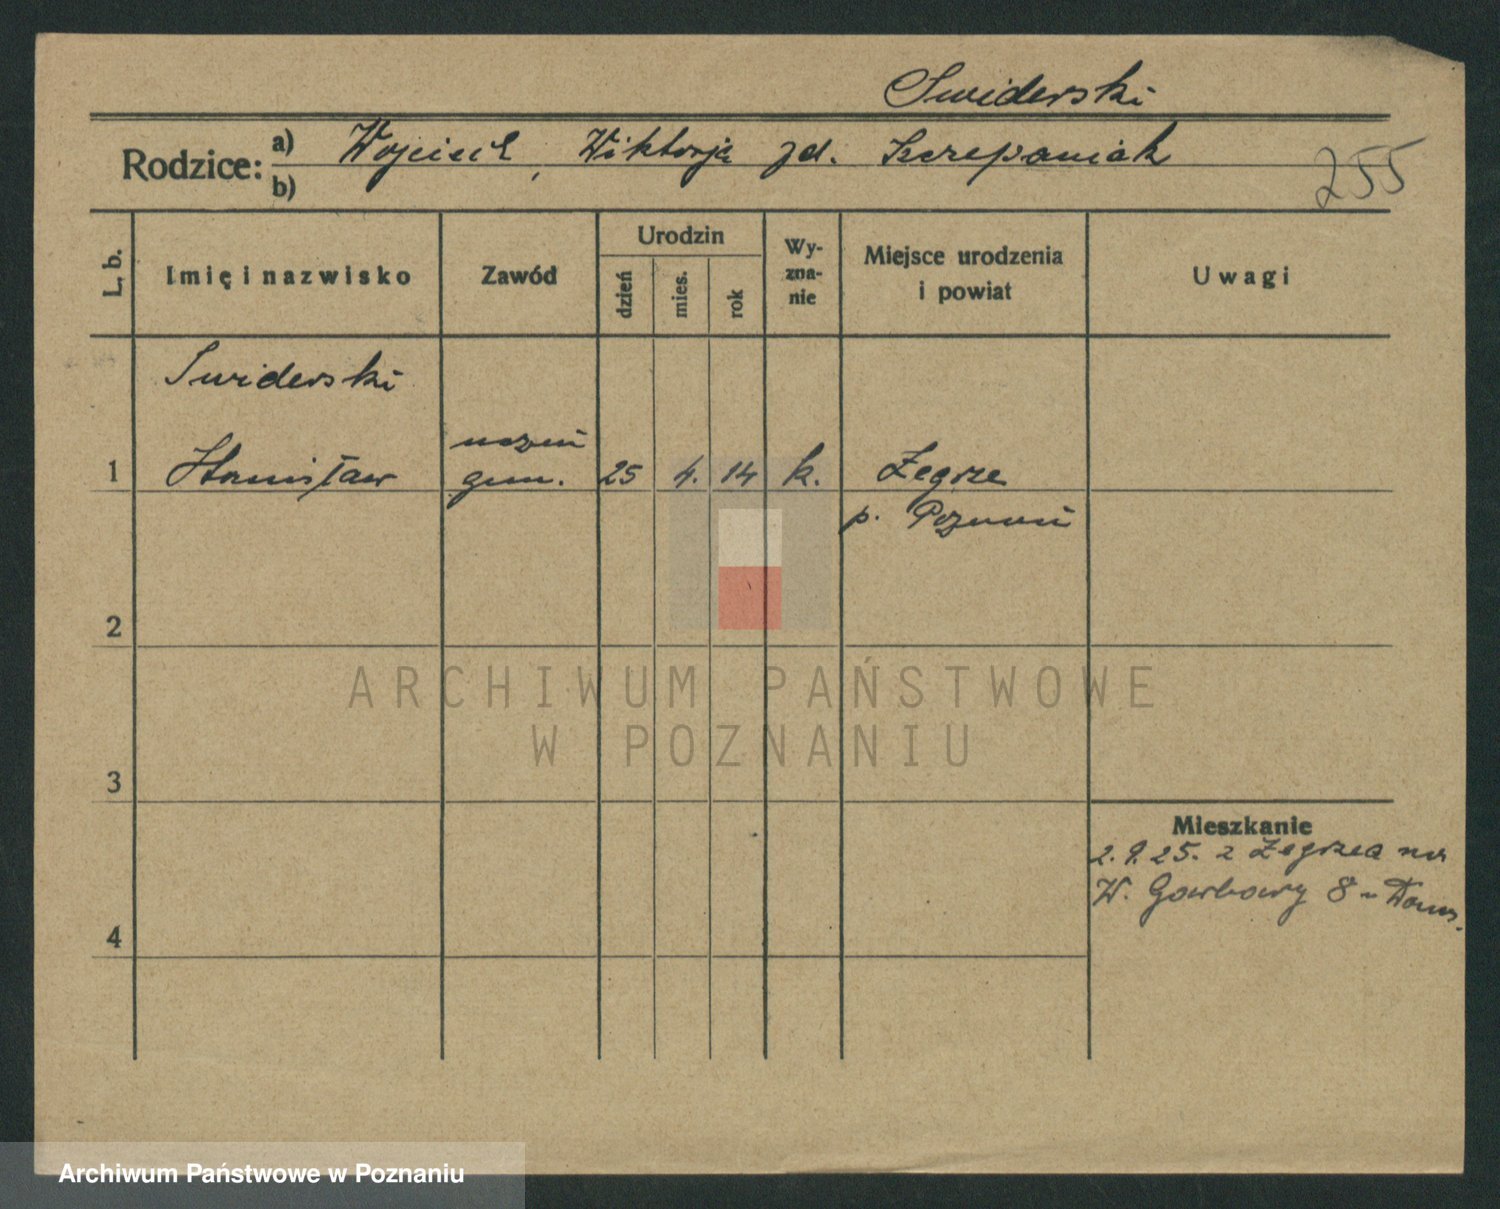 Swiderski
Rodzice: a) Wojciech, Wiktorja zd. Szczepaniak
b)
255
L. b.
Imię i nazwisko
Zawód
Urodzin
dzień
mies.
rok
Wy-
zna-
nie
Miejsce urodzenia
i powiat
Uwagi
Swiderski
uczeń
1 Stanisław gim. 25 4. 14 k. Żegrze
p. Poznań
2
3
4
Mieszkanie
2.9.25. z Żegrza na
W. Garbary 8
ARCHIWUM PAŃSTWOWE
W POZNANIU
Archiwum Państwowe w Poznaniu